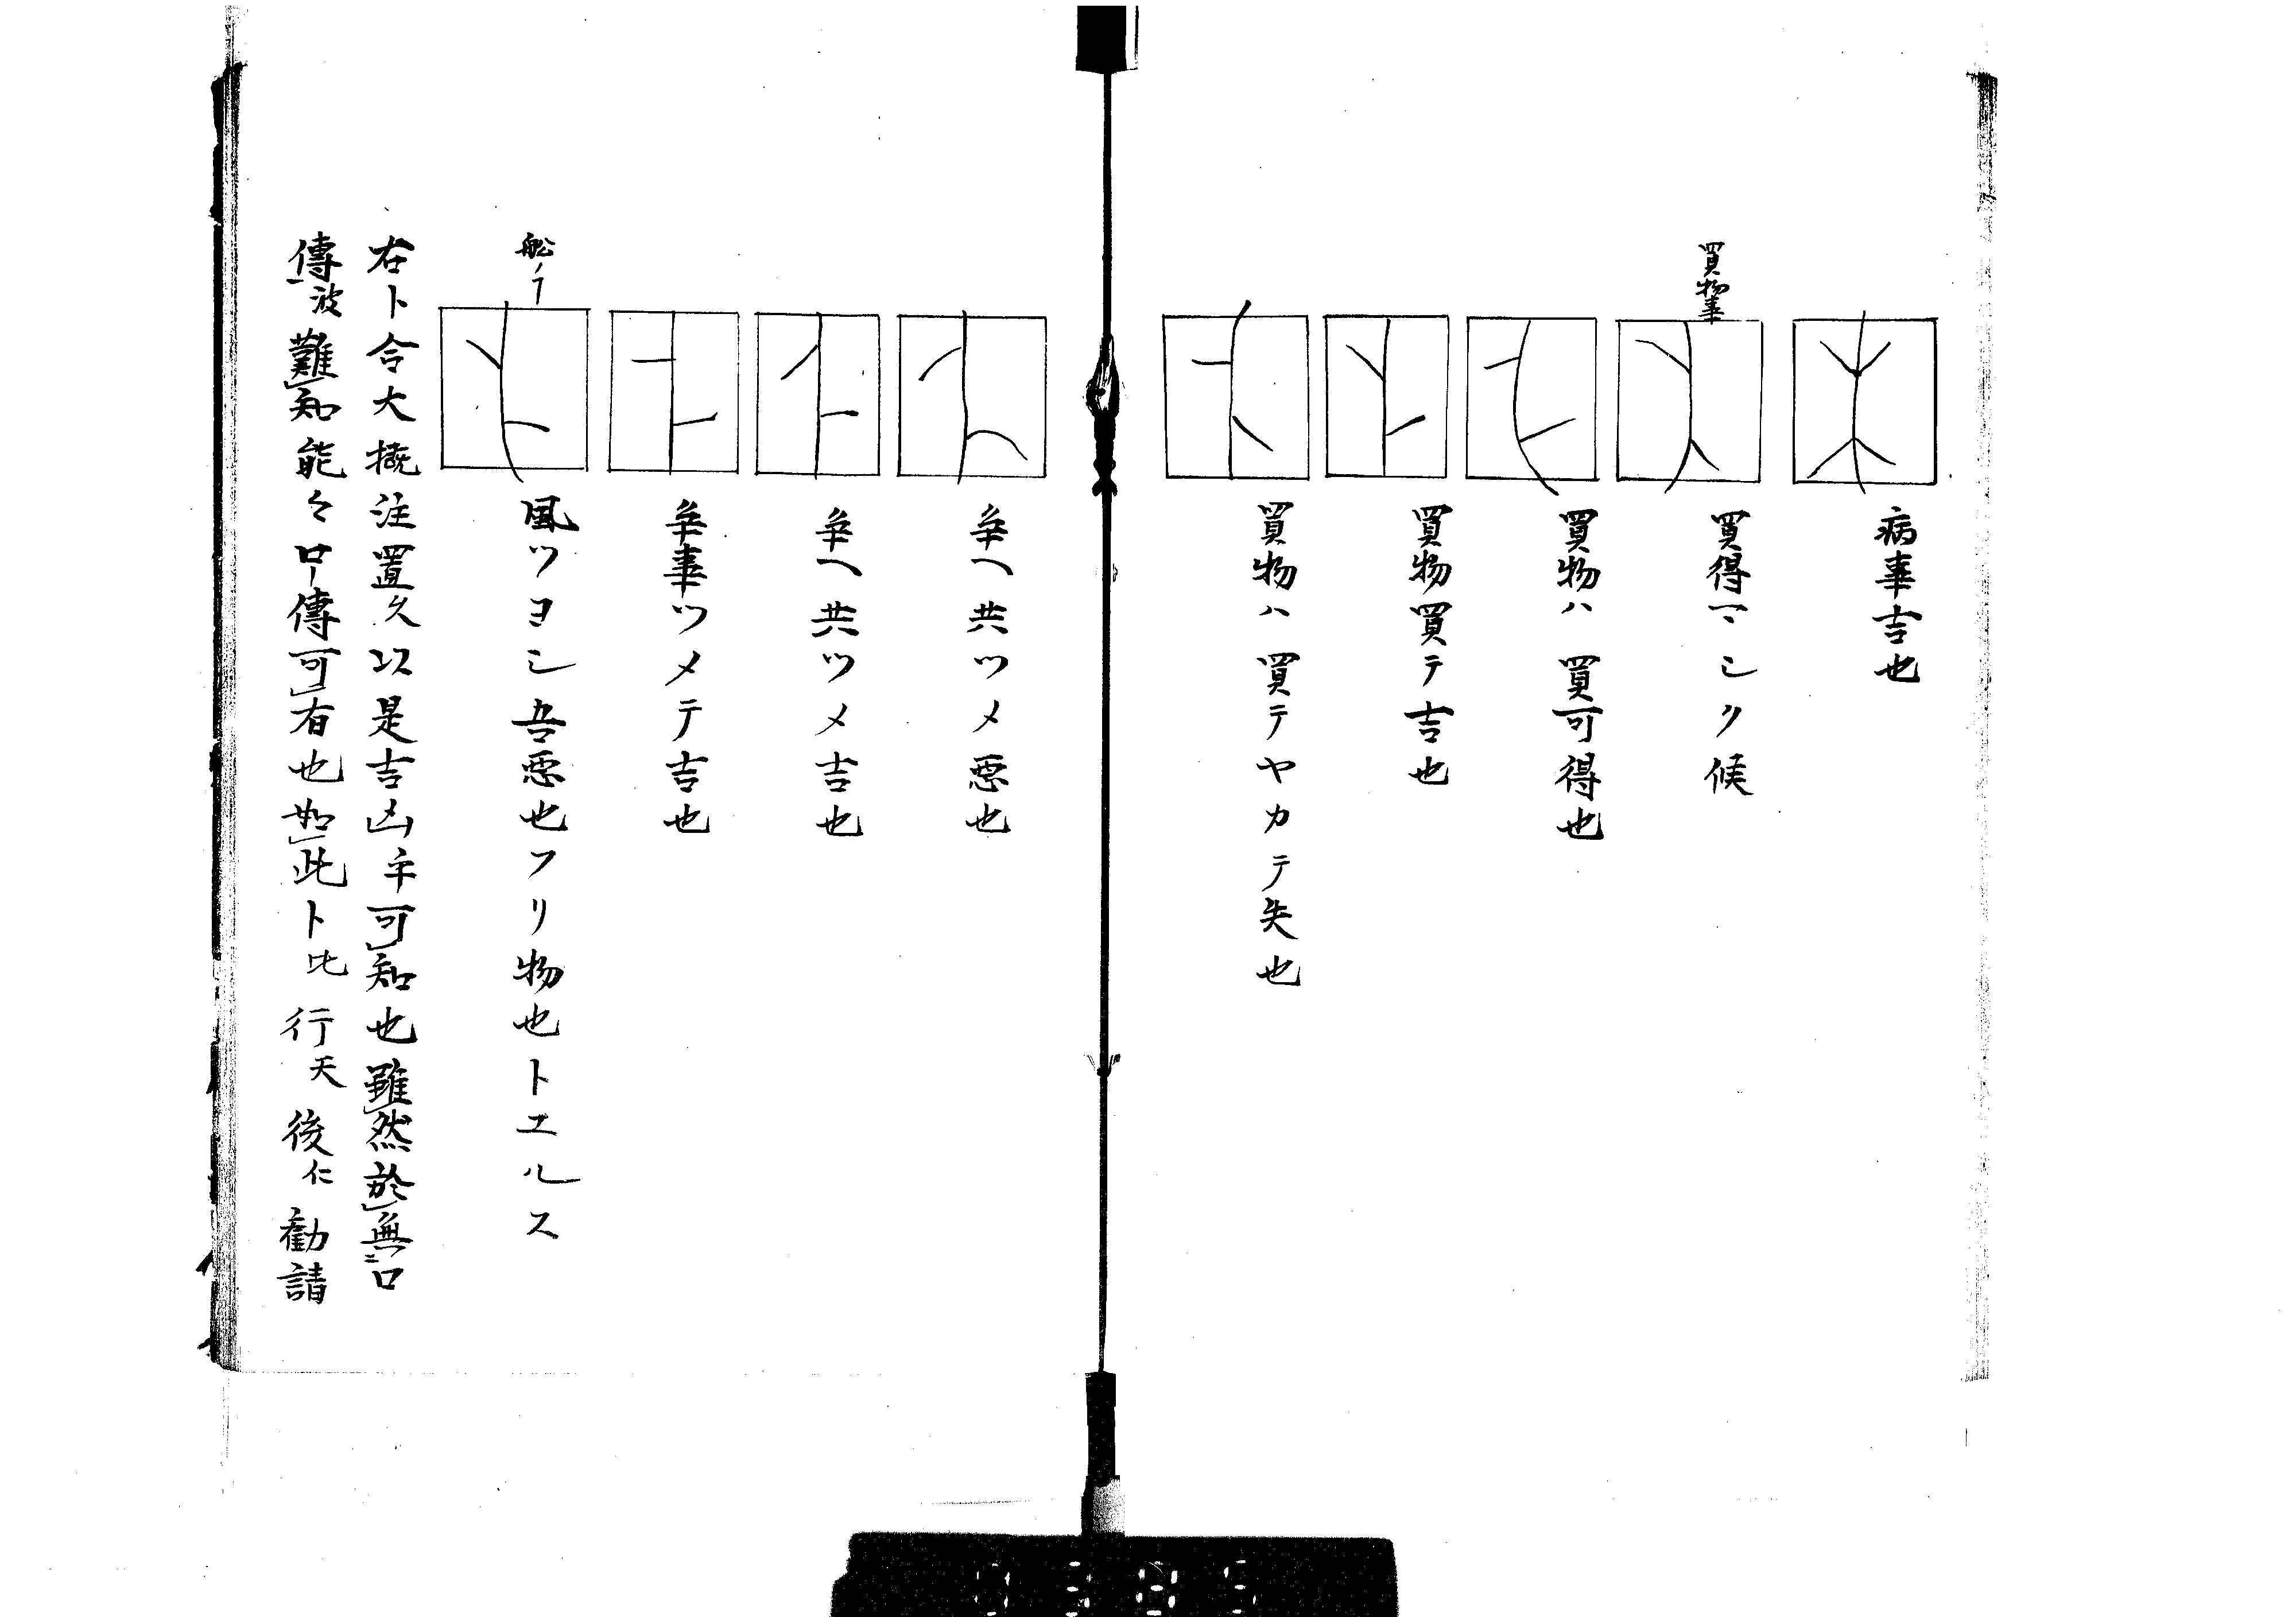 病事吉也
買物事
買得マシク候
買物ハ買可得也
買物買テ吉也
買物ハ買テヤカテ失也
争ヘ共ツメ悪也
争ヘ共ツメ吉也
争事ツメテ吉也
舩ノ
風ツヨシ 悪也フリ物也トエルス
右卜令大概注置久以是吉凶乎可知也雖然於無口
傳波難知能々口傳可有也如此卜比行天後仁勧請